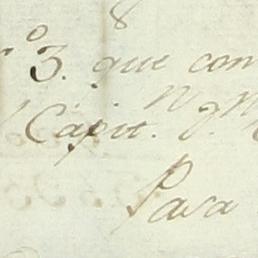 8
º 3. que con
Capit.
Para